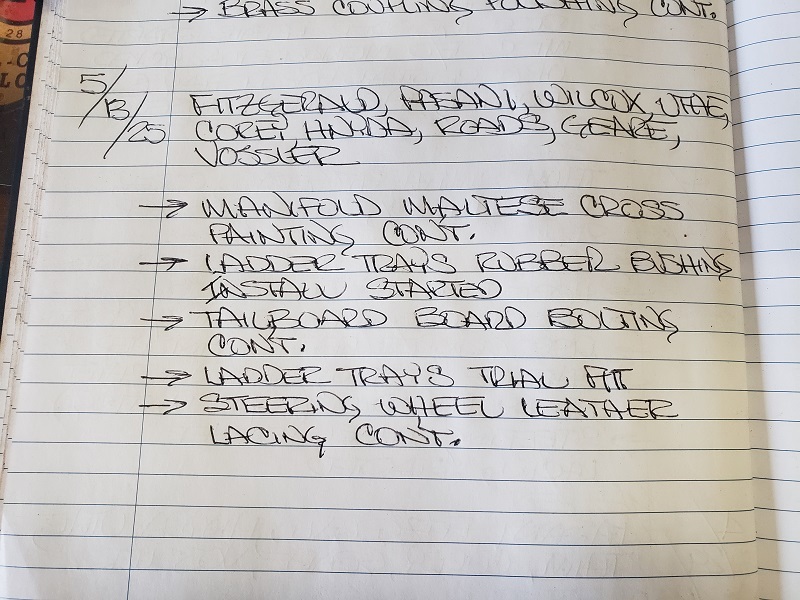 → BRASS COUPLING POLISHING CONT.
5/13/25
FITZGERALD, PAGANI, WILCOX,
COREY HNYDA, ROADS, GEARE,
VOSSLER
→ MANIFOLD MALTESE CROSS
PAINTING CONT.
→ LADDER TRAYS RUBBER BUSHING
INSTALL STARTED
→ TAILBOARD BOARD BOLTING
CONT.
→ LADDER TRAYS TRIAL FIT
→ STEERING WHEEL LEATHER
LACING CONT.
28